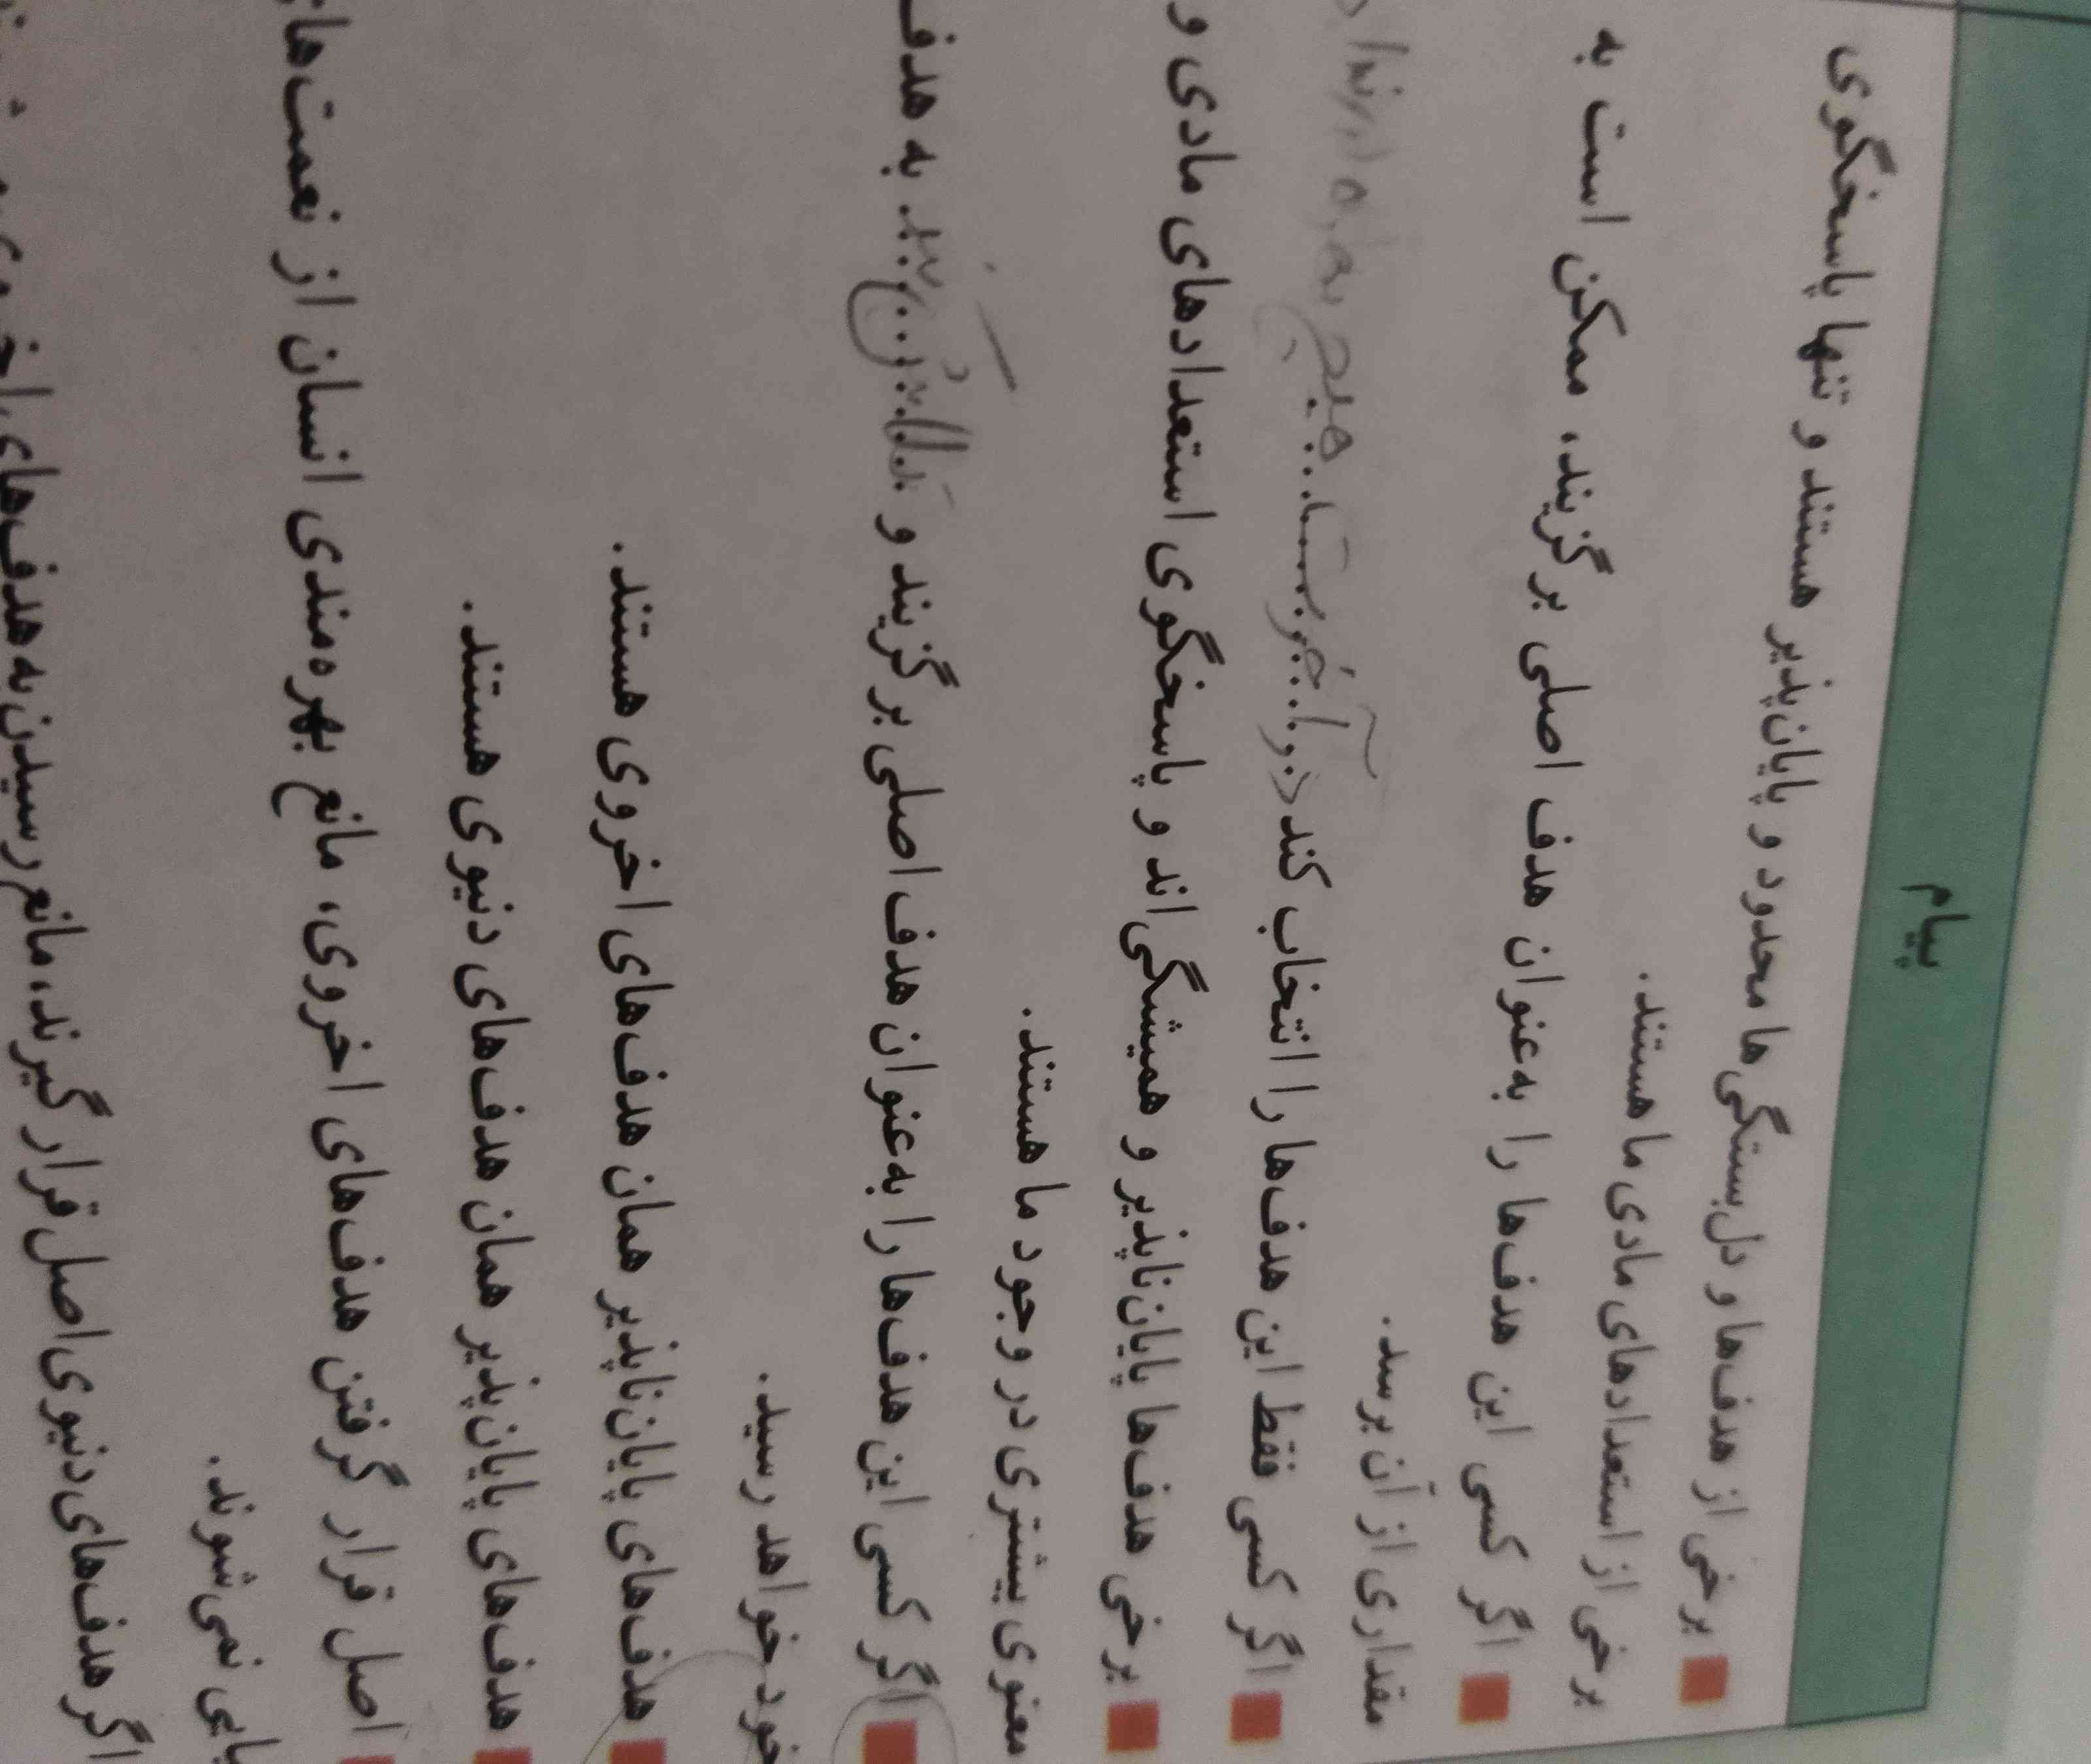 پیام
برخی از هدف‌ها و دل‌بستگی‌ها محدود و پایان‌پذیر هستند و تنها پاسخگوی
برخی از استعدادهای مادی ما هستند.
اگر کسی این هدف‌ها را به‌عنوان هدف اصلی برگزیند، ممکن است به
مقداری از آن برسد.
اگر کسی فقط این هدف‌ها را انتخاب کند در آخرت هیچ بهره
برخی هدف‌ها پایان‌ناپذیر و همیشگی‌اند و پاسخگوی استعدادهای مادی و
معنوی بیشتری در وجود ما هستند.
اگر کسی این هدف‌ها را به‌عنوان هدف اصلی برگزیند و به هدف
خود خواهد رسید.
هدف‌های پایان‌ناپذیر همان هدف‌های اخروی هستند.
هدف‌های پایان‌پذیر همان هدف‌های دنیوی هستند.
اصل قرار گرفتن هدف‌های اخروی، مانع بهره‌مندی انسان از نعمت‌های
نمی‌شوند.
اگر هدف‌های دنیوی اصل قرار گیرند، مانع رسیدن به هدف‌های اخروی